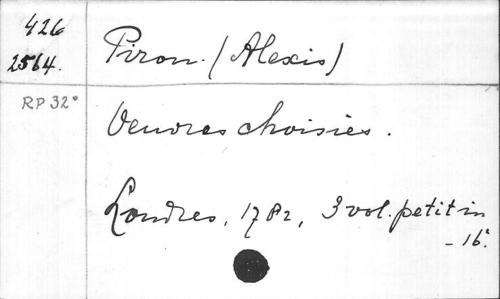 426
2564.
Piron. (Alexis)
RP 32°
Oeuvres choisies.
Londres, 1782, 3 vol. petit in
-16°.